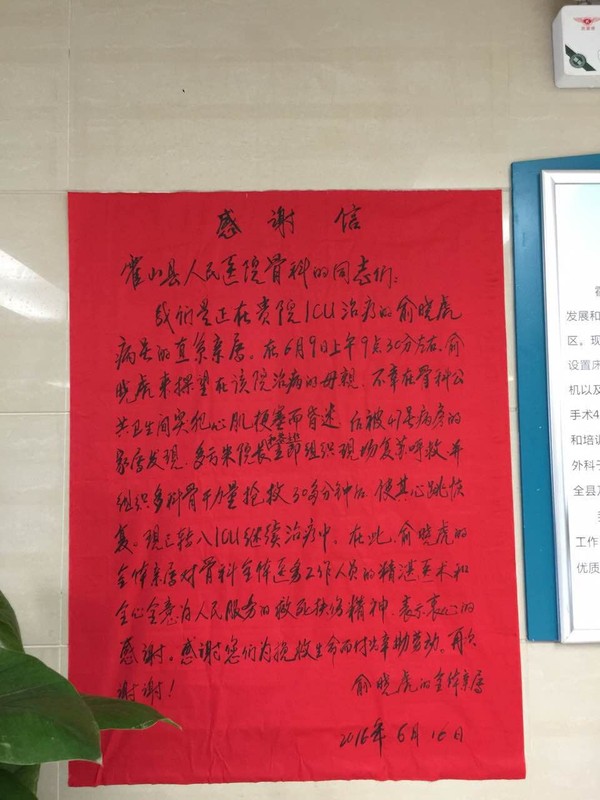 感谢信
霍山县人民医院骨科的同志们:
我们是正在贵院ICU治疗的俞晓虎
病员的直系亲属。在6月9日上午9点30分左右,俞
晓虎来探望在该院治病的母亲,不幸在骨科公
共卫生间突犯心肌梗塞而昏迷,后被47号病房的
家属发现,多亏朱院长立即组织现场复苏呼救并
组织多科骨干力量抢救30多分钟后,使其心跳恢
复。现已转入ICU继续治疗中。在此,俞晓虎的
全体亲属对骨科全体医务工作人员的精湛医术和
全心全意为人民服务的救死扶伤精神,表示衷心的
感谢。感谢您们为抢救生命而付出辛勤劳动。再次
谢谢!
俞晓虎的全体亲属
2016年6月16日
发展和
区。现
设置床
机以及
手术4
和培训
外科于
全县及
工作
优质